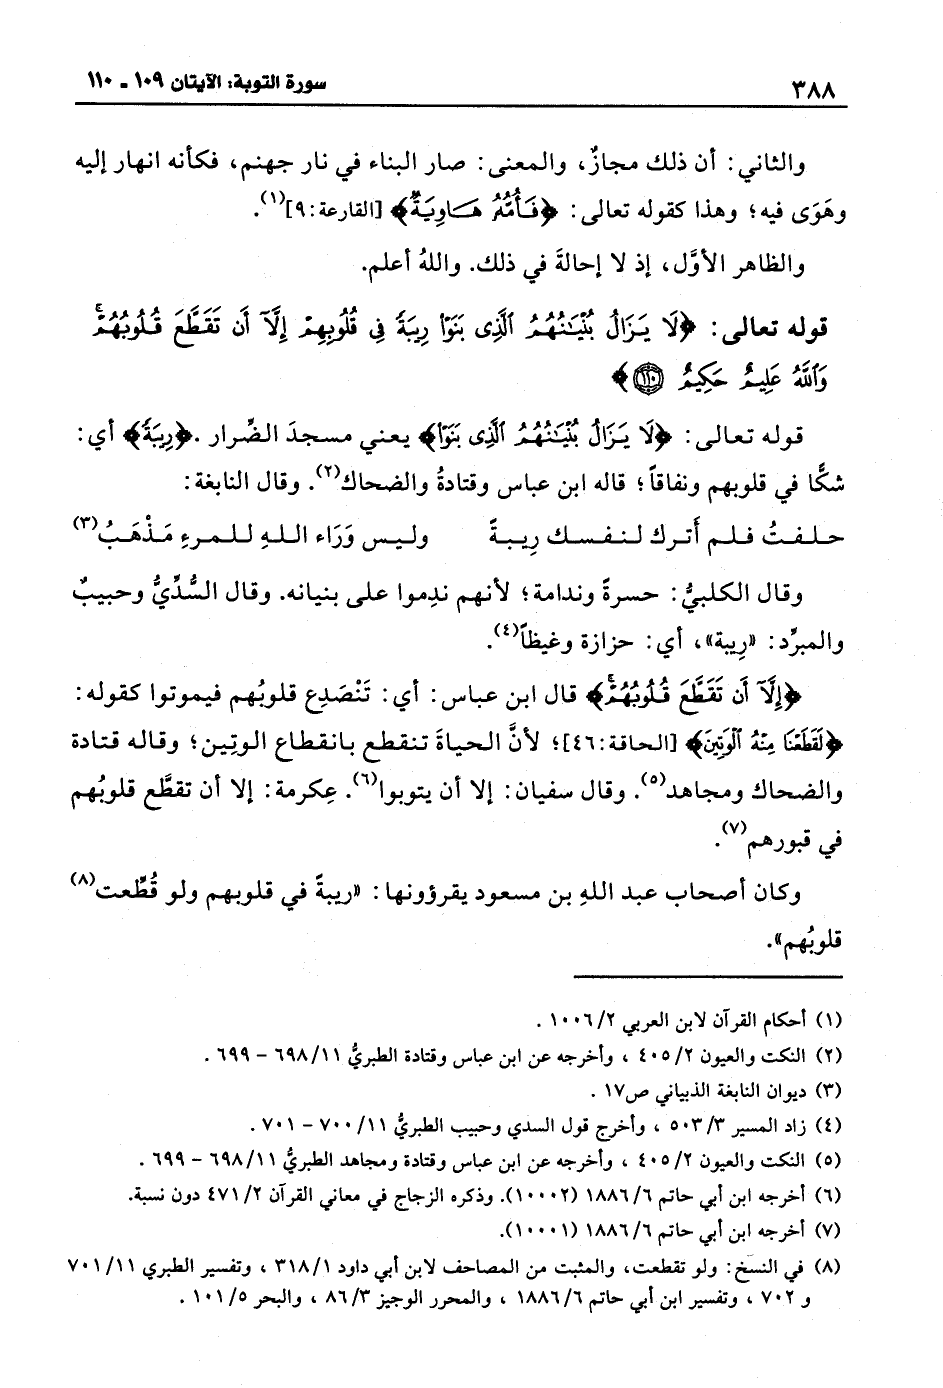 ٣٨٨ سورة التوبة: الآيتان ١٠٩ ـ ١١٠
والثاني: أن ذلك مجازٌ، والمعنى: صار البناء في نار جهنم، فكأنه انهار إليه
وهَوَى فيه؛ وهذا كقوله تعالى: ﴿فَأُمُّهُۥ هَاوِيَةٌ﴾ [القارعة:٩](١).
والظاهر الأوَّل، إذ لا إحالةَ في ذلك. واللهُ أعلم.
قوله تعالى: ﴿لَا يَزَالُ بُنْيَـٰنُهُمُ ٱلَّذِى بَنَوْا۟ رِيبَةً فِى قُلُوبِهِمْ إِلَّآ أَن تَقَطَّعَ قُلُوبُهُمْ ۗ
وَٱللَّهُ عَلِيمٌ حَكِيمٌ ١١٠﴾
قوله تعالى: ﴿لَا يَزَالُ بُنْيَـٰنُهُمُ ٱلَّذِى بَنَوْا۟﴾ يعني مسجدَ الضِّرار. ﴿رِيبَةً﴾ أي:
شكًّا في قلوبهم ونفاقاً؛ قاله ابن عباس وقتادةُ والضحاك(٢). وقال النابغة:
حلفتُ فلم أَترك لنفسك رِيبةً وليس وَرَاء اللهِ للمرءِ مَذْهَبُ(٣)
وقال الكلبيُّ: حسرةً وندامة؛ لأنهم ندِموا على بنيانه. وقال السُّدِّيُّ وحبيبٌ
والمبرِّد: «رِيبة»، أي: حزازة وغيظاً(٤).
﴿إِلَّآ أَن تَقَطَّعَ قُلُوبُهُمْ ۗ﴾ قال ابن عباس: أي: تَنْصَدِع قلوبُهم فيموتوا كقوله:
﴿لَقَطَعْنَا مِنْهُ ٱلْوَتِينَ﴾ [الحاقة:٤٦]؛ لأنَّ الحياةَ تنقطع بانقطاع الوتِين؛ وقاله قتادة
والضحاك ومجاهد(٥). وقال سفيان: إلا أن يتوبوا(٦). عِكرمة: إلا أن تقطَّع قلوبُهم
في قبورهم(٧).
وكان أصحاب عبد اللهِ بن مسعود يقرؤونها: «ريبةً في قلوبهم ولو قُطِّعت(٨)
قلوبُهم».
(١) أحكام القرآن لابن العربي ١٠٠٦/٢ .
(٢) النكت والعيون ٤٠٥/٢ ، وأخرجه عن ابن عباس وقتادة الطبريُّ ٦٩٨/١١ - ٦٩٩ .
(٣) ديوان النابغة الذبياني ص١٧ .
(٤) زاد المسير ٥٠٣/٣ ، وأخرج قول السدي وحبيب الطبريُّ ٧٠٠/١١ - ٧٠١ .
(٥) النكت والعيون ٤٠٥/٢ ، وأخرجه عن ابن عباس وقتادة ومجاهد الطبريُّ ٦٩٨/١١ - ٦٩٩ .
(٦) أخرجه ابن أبي حاتم ١٨٨٦/٦ (١٠٠٠٢). وذكره الزجاج في معاني القرآن ٤٧١/٢ دون نسبة.
(٧) أخرجه ابن أبي حاتم ١٨٨٦/٦ (١٠٠٠١).
(٨) في النسخ: ولو تقطعت، والمثبت من المصاحف لابن أبي داود ٣١٨/١ ، وتفسير الطبري ٧٠١/١١
و ٧٠٢ ، وتفسير ابن أبي حاتم ١٨٨٦/٦ ، والمحرر الوجيز ٨٦/٣ ، والبحر ١٠١/٥ .